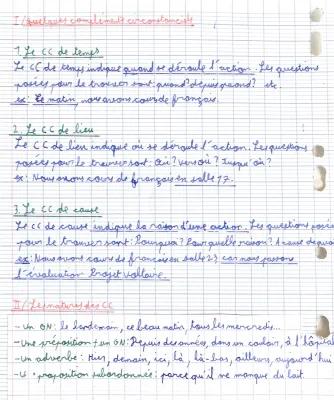 I/ Quelques compléments circonstanciels
1. Le CC de temps
Le CC de temps indique quand se déroule l'action. Les questions
posées pour le trouver sont: quand? depuis quand? etc.
ex: Le matin, nous avons cours de français.
2. Le CC de lieu
Le CC de lieu indique où se déroule l'action. Les questions
posées pour le trouver sont: Où? Vers où? Jusqu'où?
ex: Nous avons cours de français en salle 17.
3. Le CC de cause
Le CC de cause indique la raison d'une action. Les questions posées
pour le trouver sont: Pourquoi? Pour quelle raison? A cause de quoi
ex: Nous avons cours de français en salle 23 car nous passons
l'évaluation Projet Voltaire.
II/ Les natures des CC
- un GN: le lendemain, ce beau matin, tous les mercredis...
- Une préposition + un GN: Depuis des années, dans un couloir, à l'hôpital
- un adverbe: Hier, demain, ici, là, là-bas, ailleurs, aujourd'hui
- proposition subordonnée: parce qu'il me manque du lait.